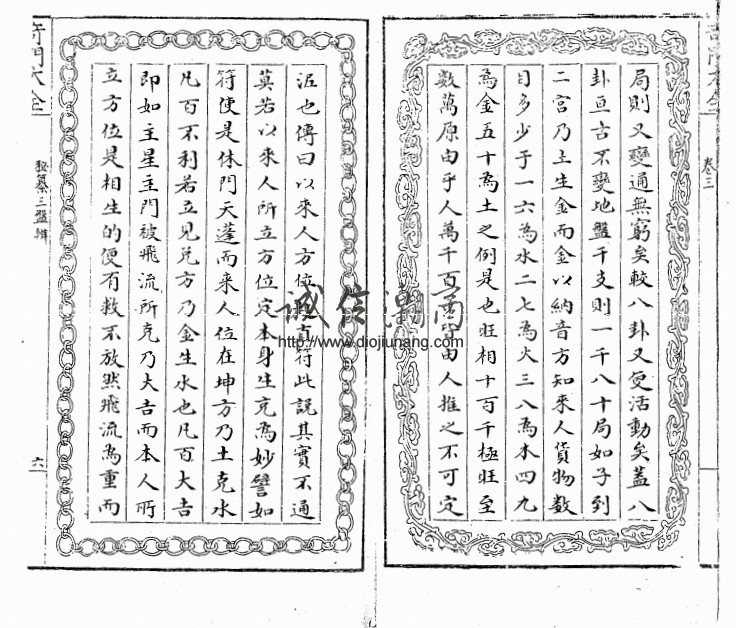 卷三
局則又變通無窮矣較八卦又更活動矣蓋八
卦亘古不變地盤干支則一千八十局如子到
二宮乃土生金而金以納音方知來人貨物數
目多少于一六為水二七為火三八為木四九
為金五十為土之例是也旺相十百千極旺至
數萬原由乎人萬千百皆由人推之不可定
泥也傳曰以來人方位直符此說其實不通
莫若以來人所立方位定本身生克為妙譬如
符使是休門天蓬而來人位在坤方乃土克水
凡百不利若立見兌方乃金生水也凡百大吉
即如主星主門被飛流所克乃大吉而本人所
立方位是相生的便有救不放然飛流為重而
奇門大全
秘纂三盤辨
六
誠信
http://www.diojiunang.com